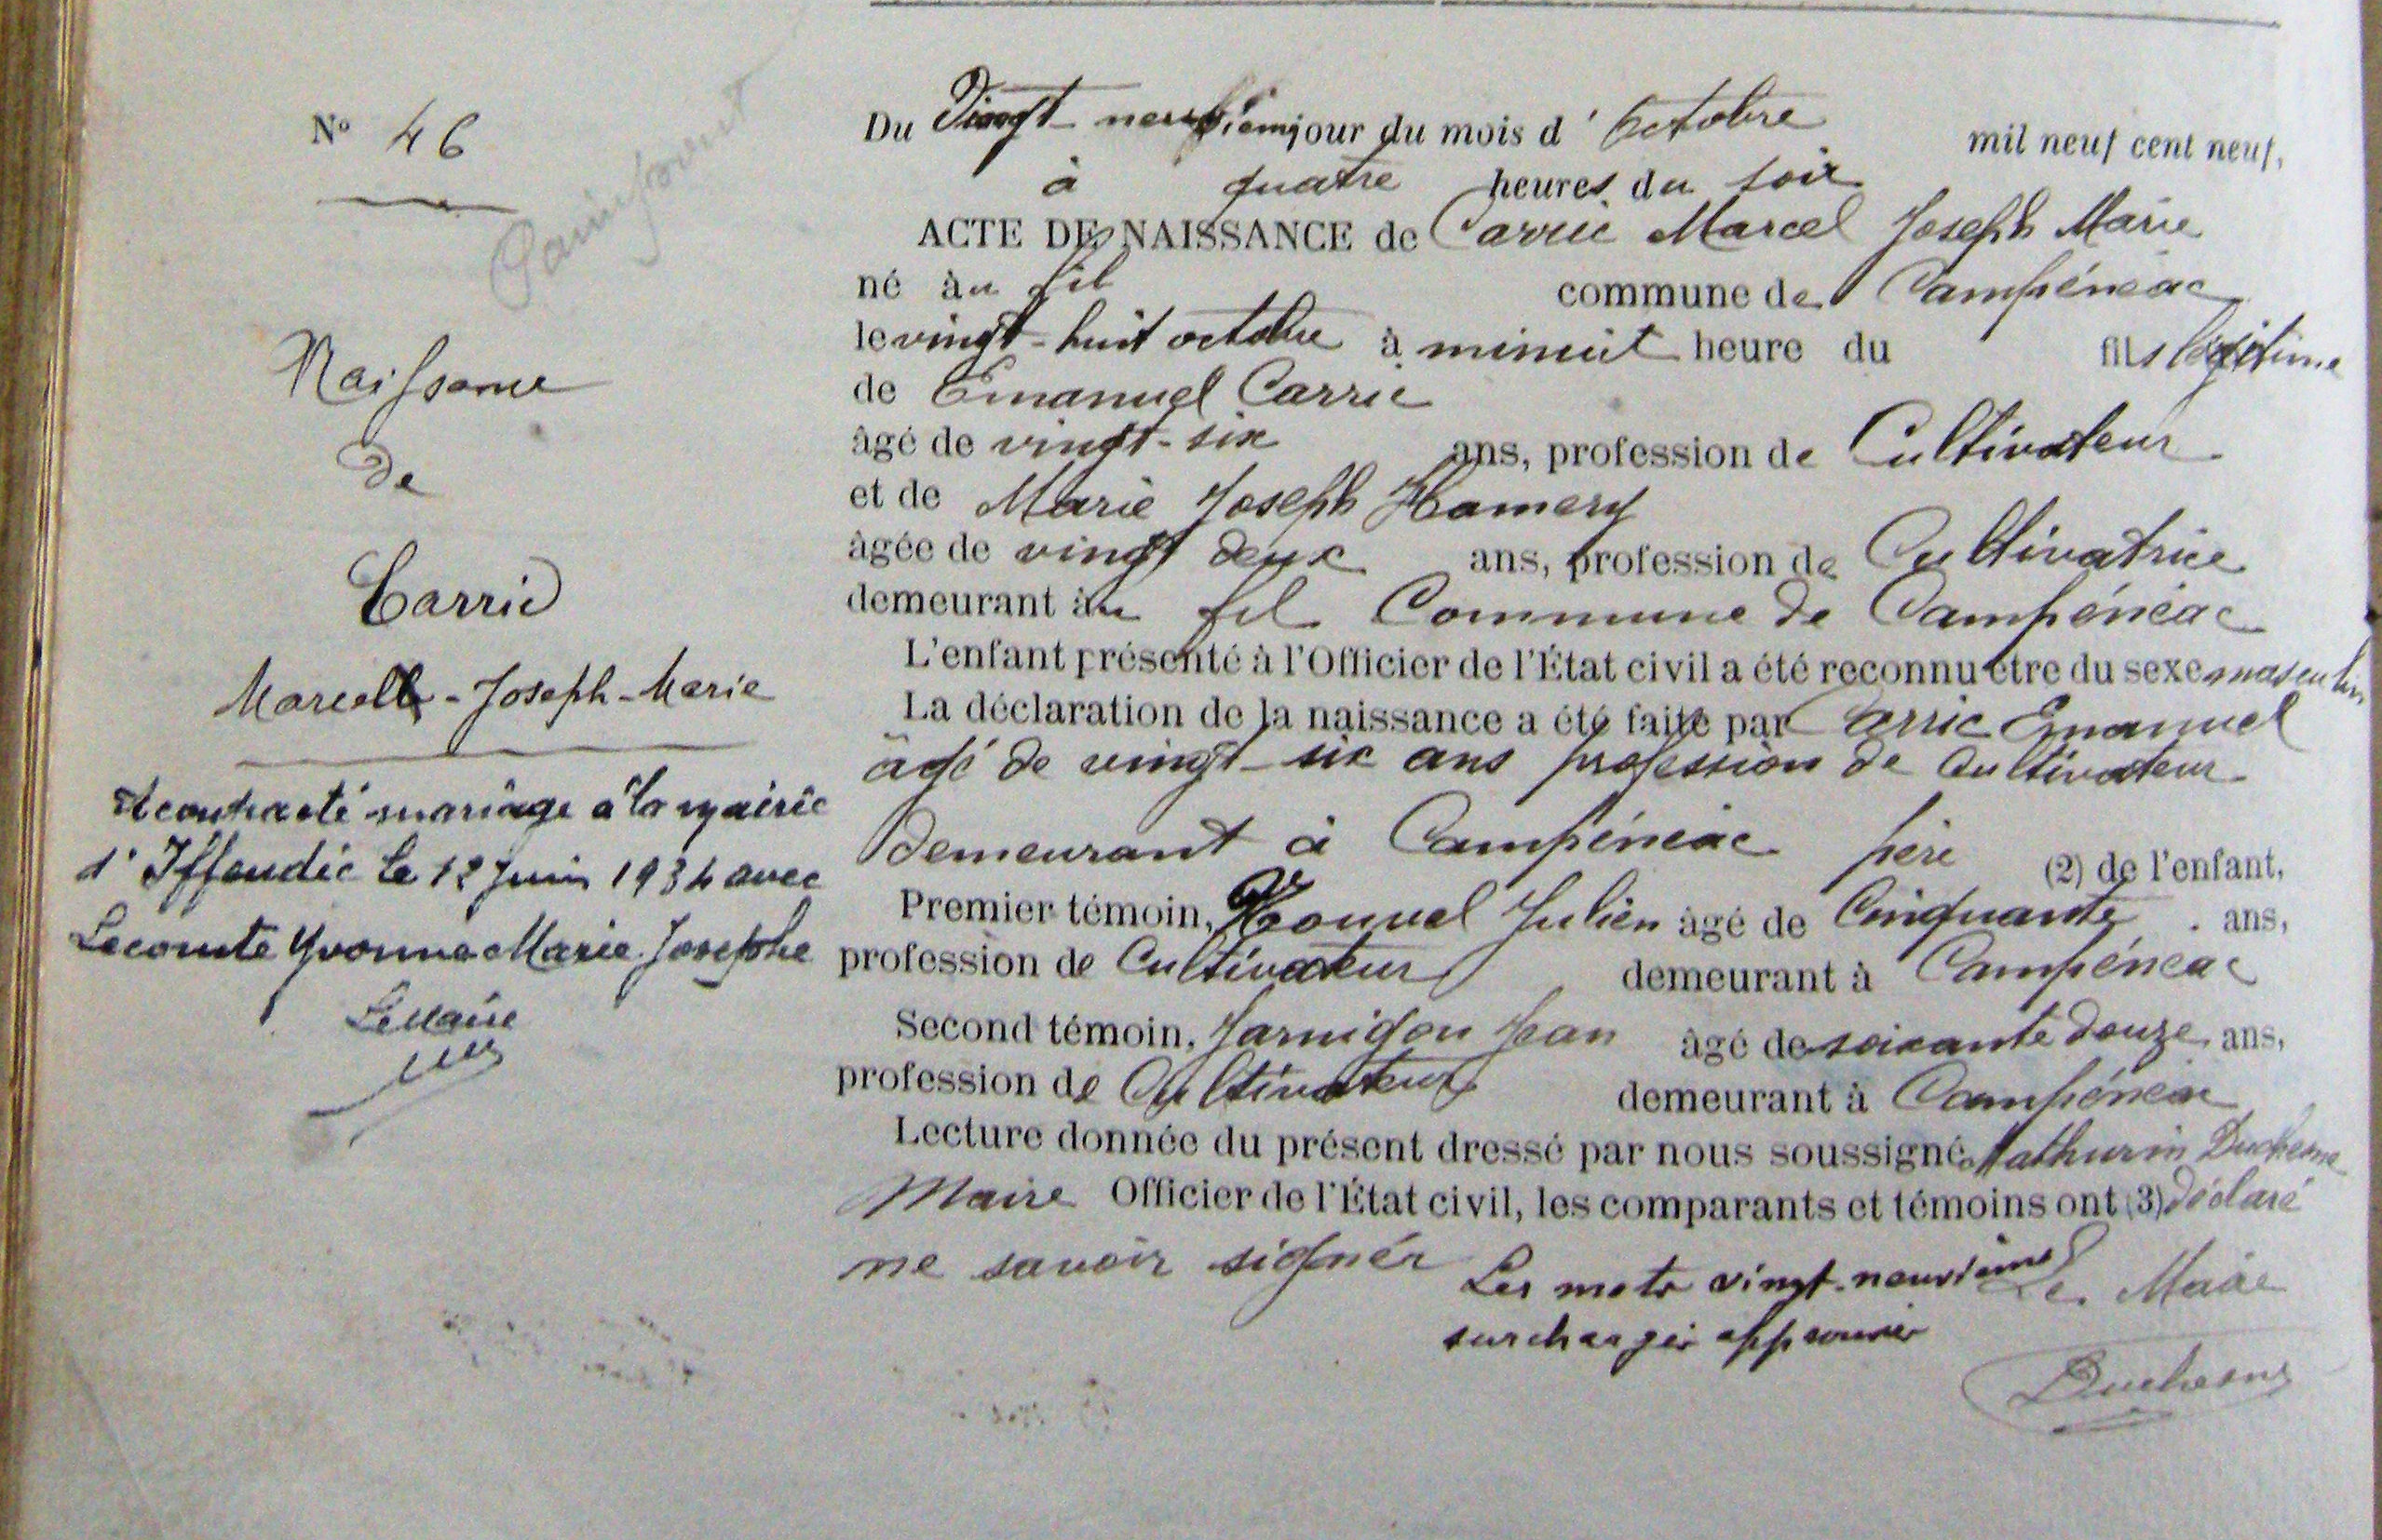 N° 46
Naissance
de
Carric
Marcel - Joseph - Marie
A contracté mariage à la mairie
d'Iffendic le 12 Juin 1934 avec
Lecomte Yvonne Marie Josephe
Le Maire
Du Vingt neuvième jour du mois d' Octobre mil neuf cent neuf,
à quatre heures du soir
ACTE DE NAISSANCE de Carric Marcel Joseph Marie
né àu fil commune de Campénéac
le vingt-huit octobre à minuit heure du fils légitime
de Emanuel Carric
âgé de vingt-six ans, profession de Cultivateur
et de Marie Joseph Hamery
âgée de vingt deux ans, profession de Cultivatrice
demeurant àu fil Commune de Campénéac
L'enfant présenté à l'Officier de l'État civil a été reconnu être du sexe masculin
La déclaration de la naissance a été faite par Carric Emanuel
âgé de vingt-six ans profession de Cultivateur
demeurant à Campénéac père (2) de l'enfant,
Premier témoin, Julien âgé de Cinquante ans,
profession de Cultivateur demeurant à Campénéac
Second témoin, Jarnigon Jean âgé de soixante douze ans,
profession de Cultivateur demeurant à Campénéac
Lecture donnée du présent dressé par nous soussigné Mathurin Duchesne
Maire Officier de l'État civil, les comparants et témoins ont (3) déclaré
ne savoir signer
Les mots vingt-neuvième
surchargés approuvés
Le Maire
Duchesne